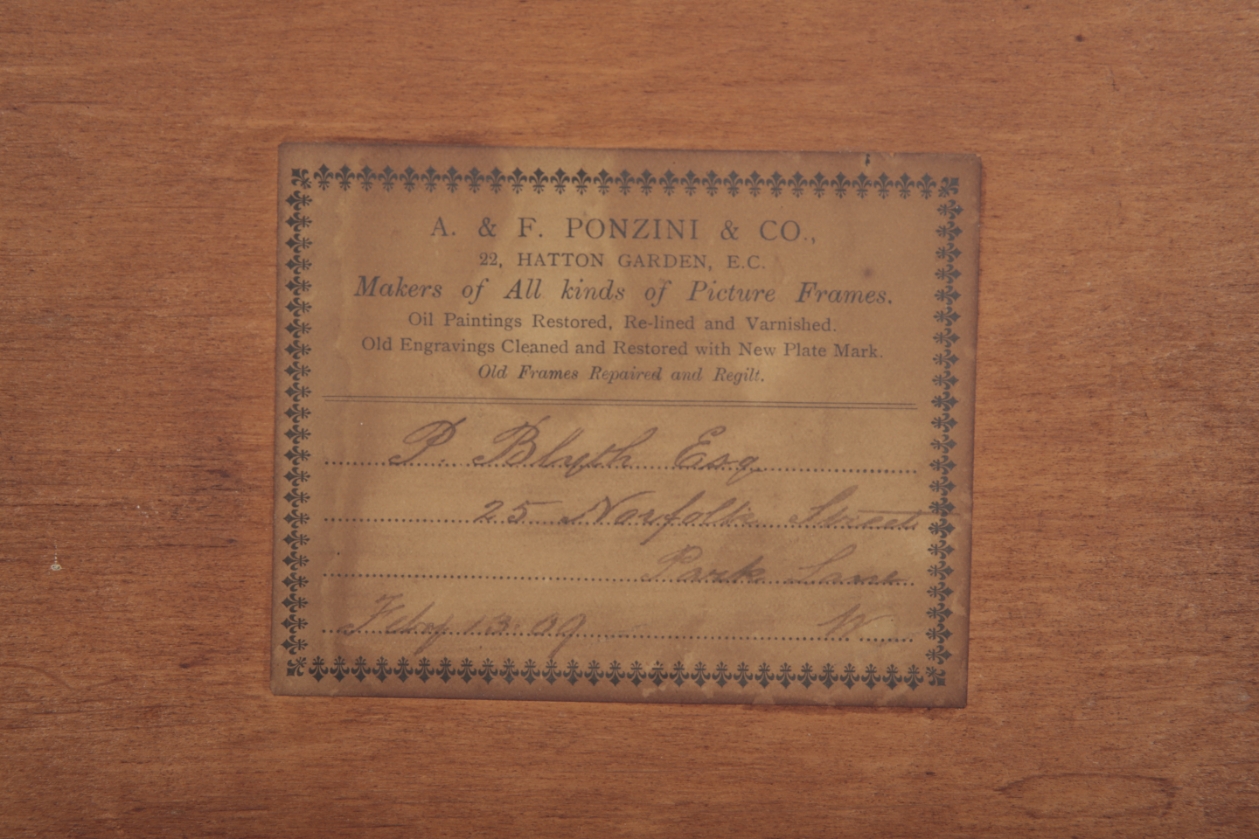 A. & F. PONZINI & CO.,
22, HATTON GARDEN, E.C.
Makers of All kinds of Picture Frames.
Oil Paintings Restored, Re-lined and Varnished.
Old Engravings Cleaned and Restored with New Plate Mark.
Old Frames Repaired and Regilt.
P. Blyth Esq
25 Norfolk Street
Park Lane
Feby 13. 09 W